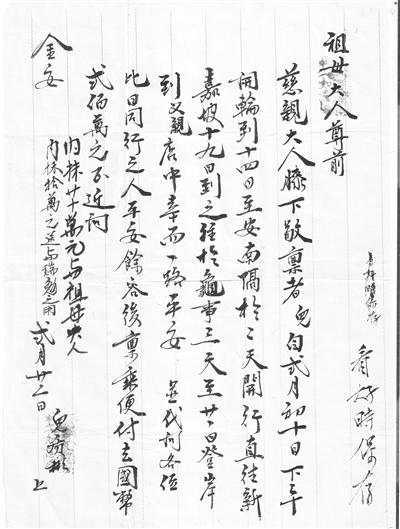 祖母大人尊前
慈親大人膝下敬禀者兒自弍月初十日下午
開輪到十四日至安南隔於二天開行直往新
嘉坡十九日到之經於龜嶼三天至廿二日登岸
到父親店中幸而一路平安 並代问各位
比日同行之人平安餘容後禀乘便付去國幣
弍佰萬之 近问
金安
內抹廿萬元与祖母大人
內抹拾萬之送与 之用
弍月廿二日
兒 上
看好時保存
看好時保存